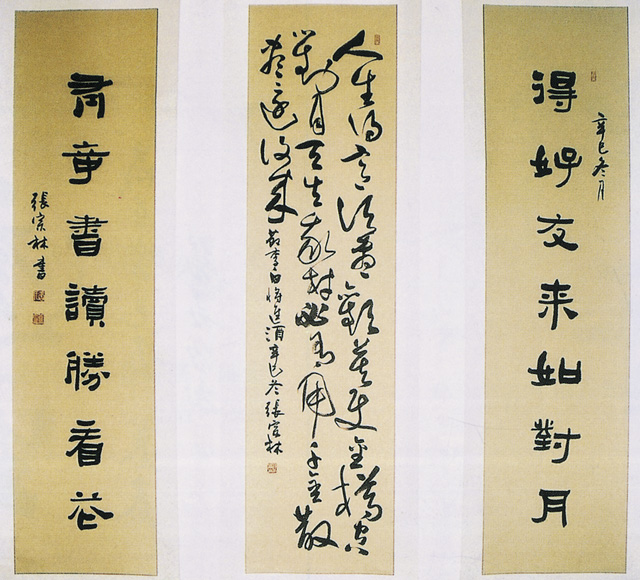 辛巳冬月
得好友来如對月
人生得意須盡歡莫使金樽空
對月天生我材必有用千金散
盡還復來
李白將進酒辛巳冬張宗林
有奇書讀勝看花
張宗林書